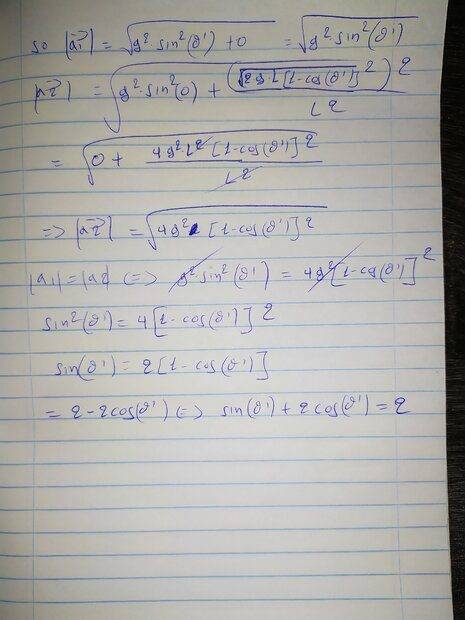 so |a₁⃗| = √(g²·sin²(θ') + 0) = √(g²·sin²(θ'))
|a₂⃗| = √(g²·sin²(0) + ((√(2gL[1-cos(θ')]))²)²/L²)
= √(0 + 4g²·L²[1-cos(θ')]²/L²)
=> |a₂⃗| = √(4g²[1-cos(θ')]²)
|a₁| = |a₂| <=> g²sin²(θ') = 4g²[1-cos(θ')]²
sin²(θ') = 4[1-cos(θ')]²
sin(θ') = 2[1-cos(θ')]
= 2-2cos(θ') <=> sin(θ') + 2cos(θ') = 2